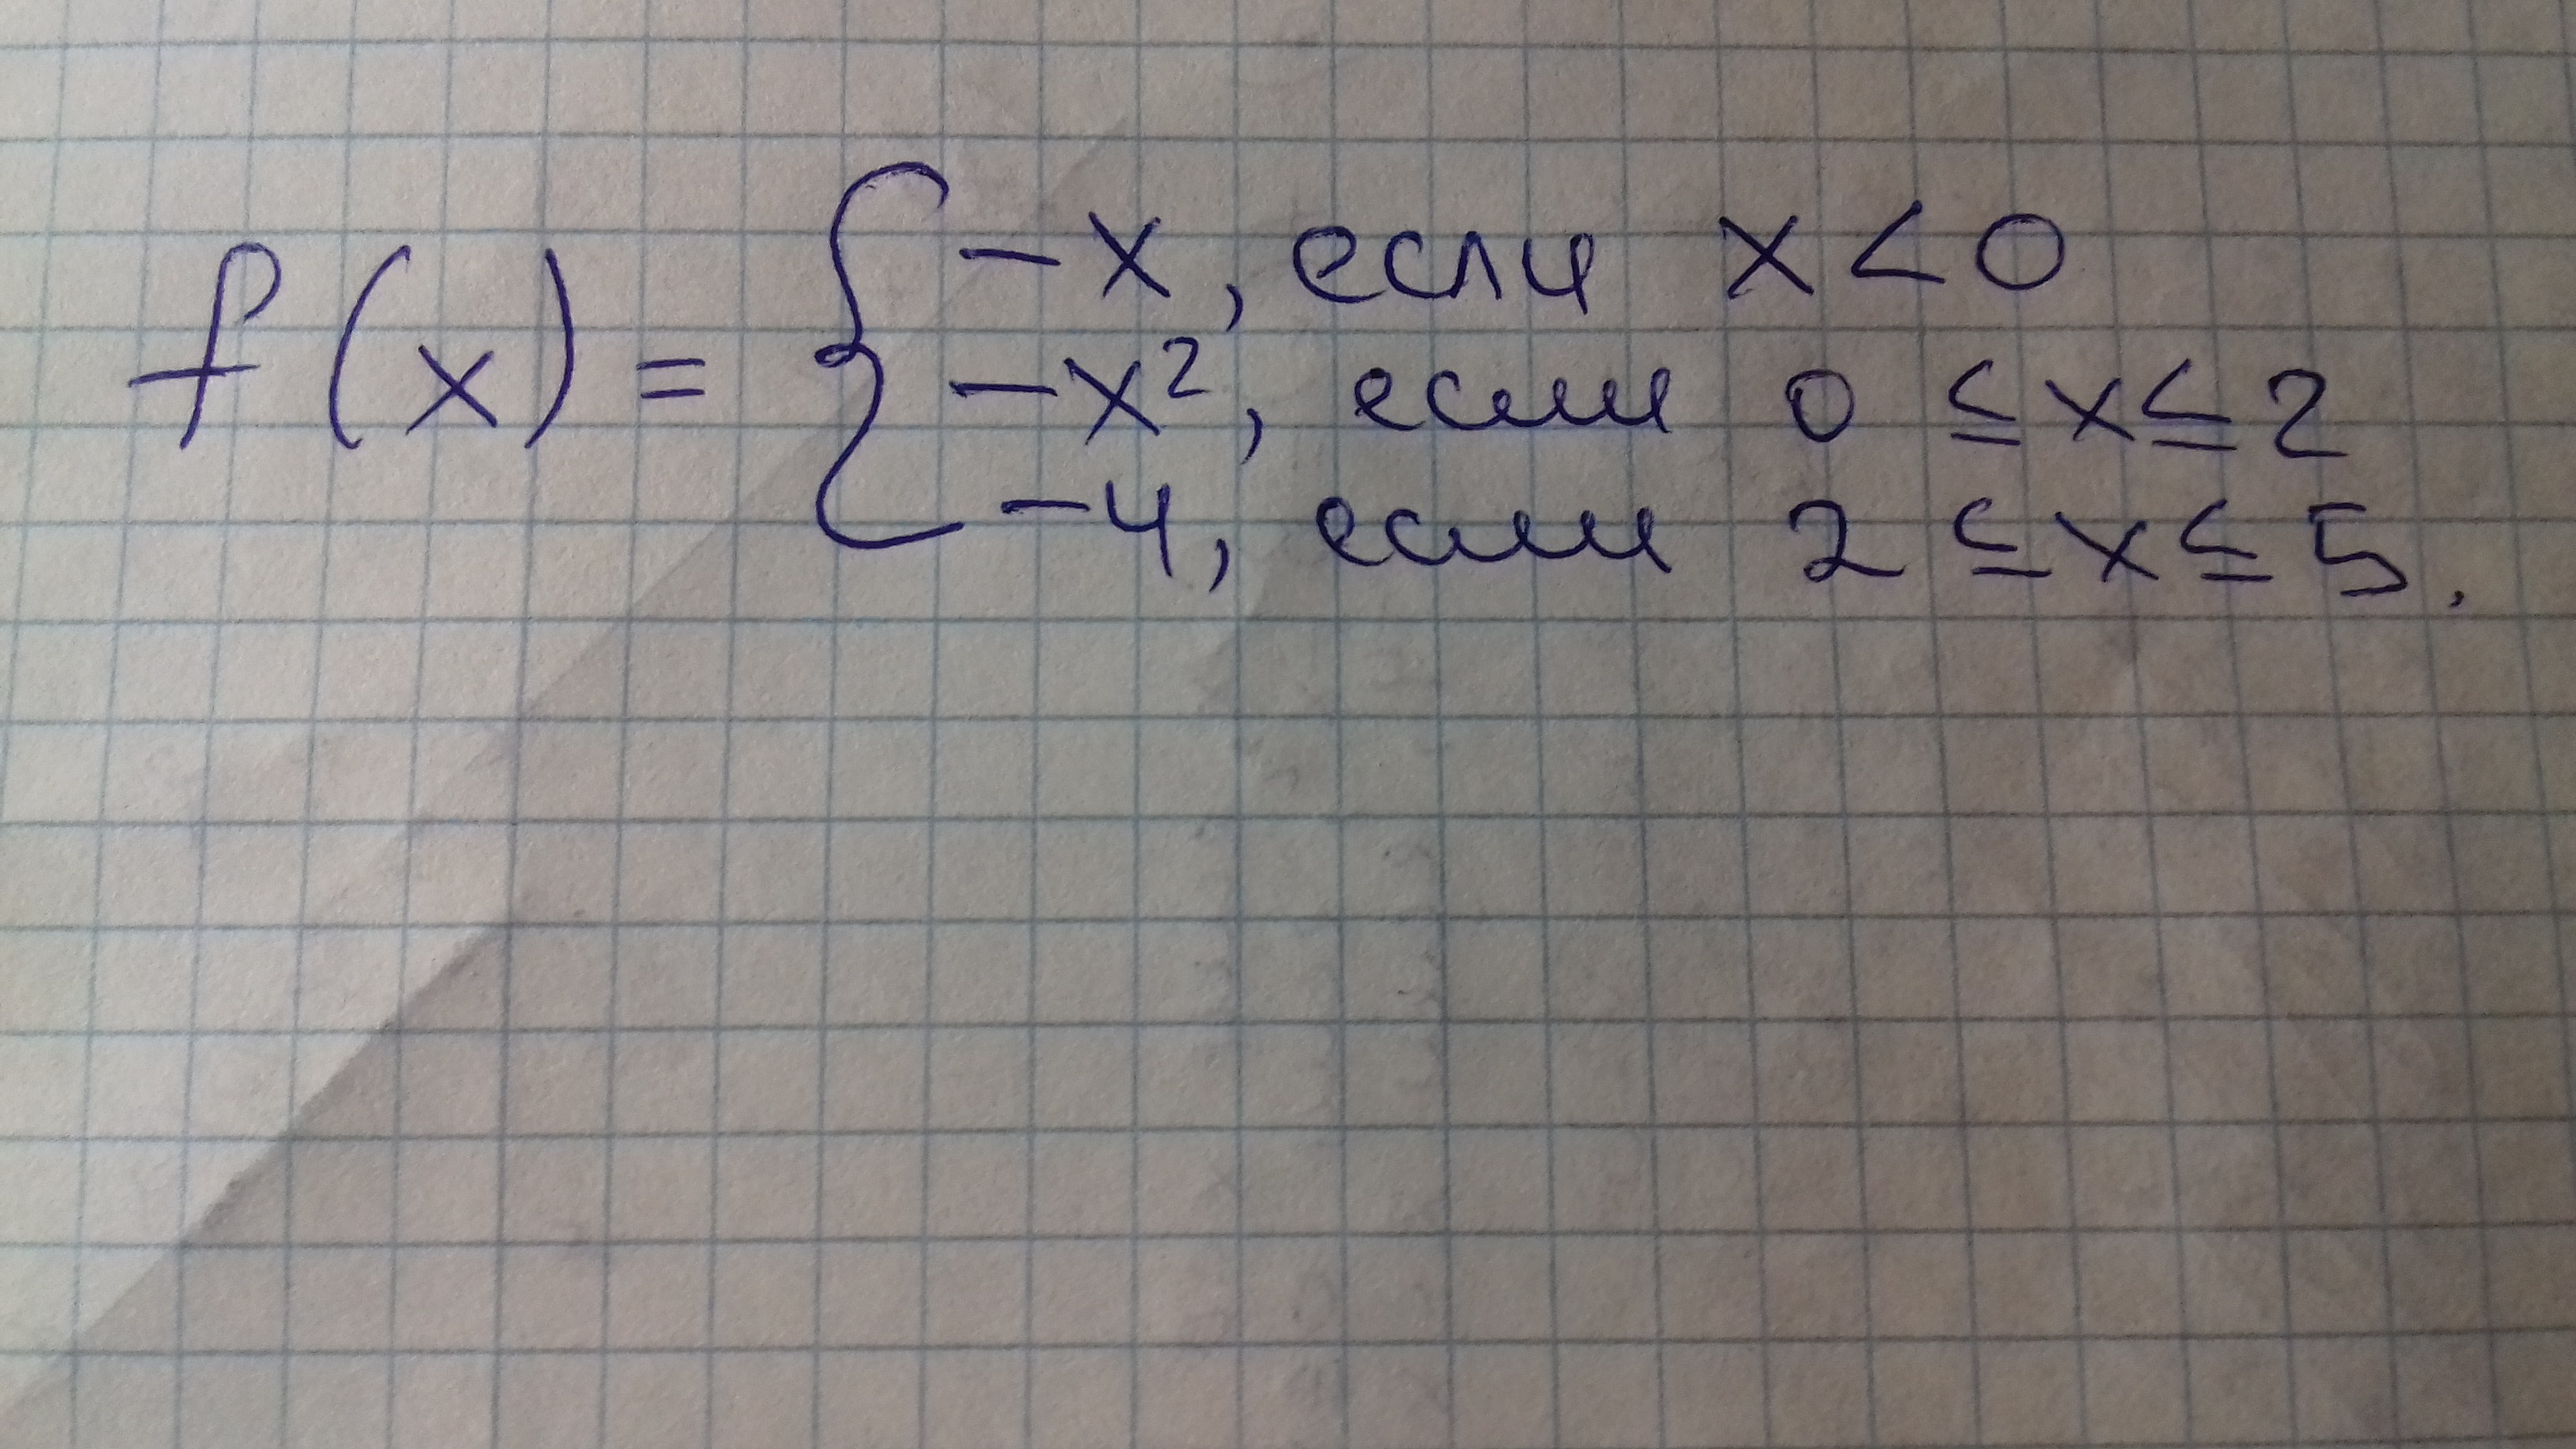 f(x) = { -x, если x < 0
-x², если 0 ≤ x ≤ 2
-4, если 2 ≤ x ≤ 5.